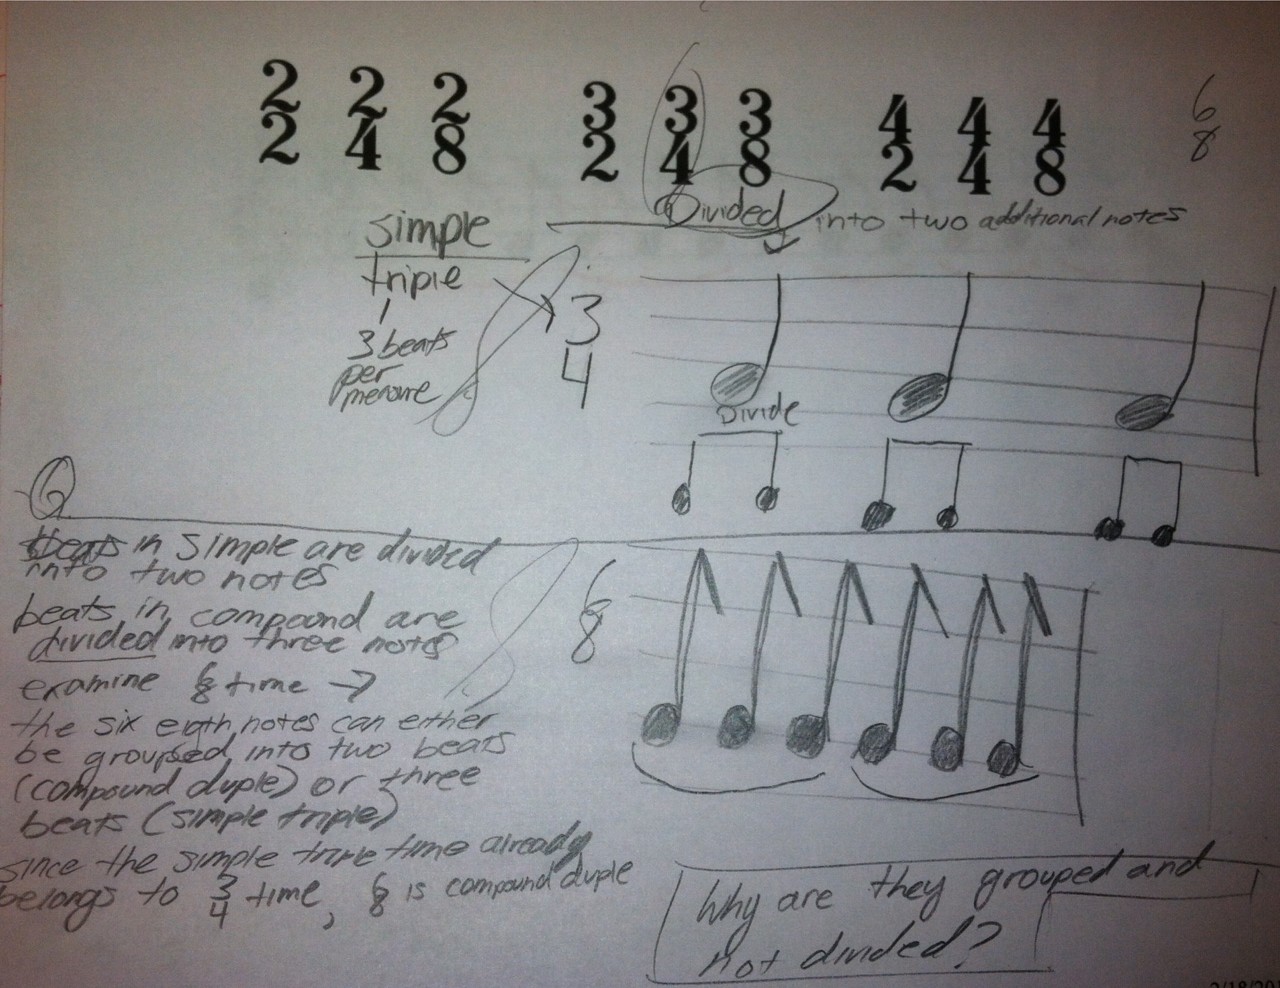 2 2 2 3 3 3 4 4 4 6
2 4 8 2 4 8 2 4 8 8
simple
Divided into two additional notes
triple
3 beats
per
3
4
Divide
Q
beats in simple are divided
into two notes
beats in compound are
divided into three notes
examine 6/8 time →
the six eigth notes can either
be grouped into two beats
(compound duple) or three
beats (simple triple)
since the simple triple time already
belongs to 3/4 time, 6/8 is compound duple
6
8
Why are they grouped and
not divided?